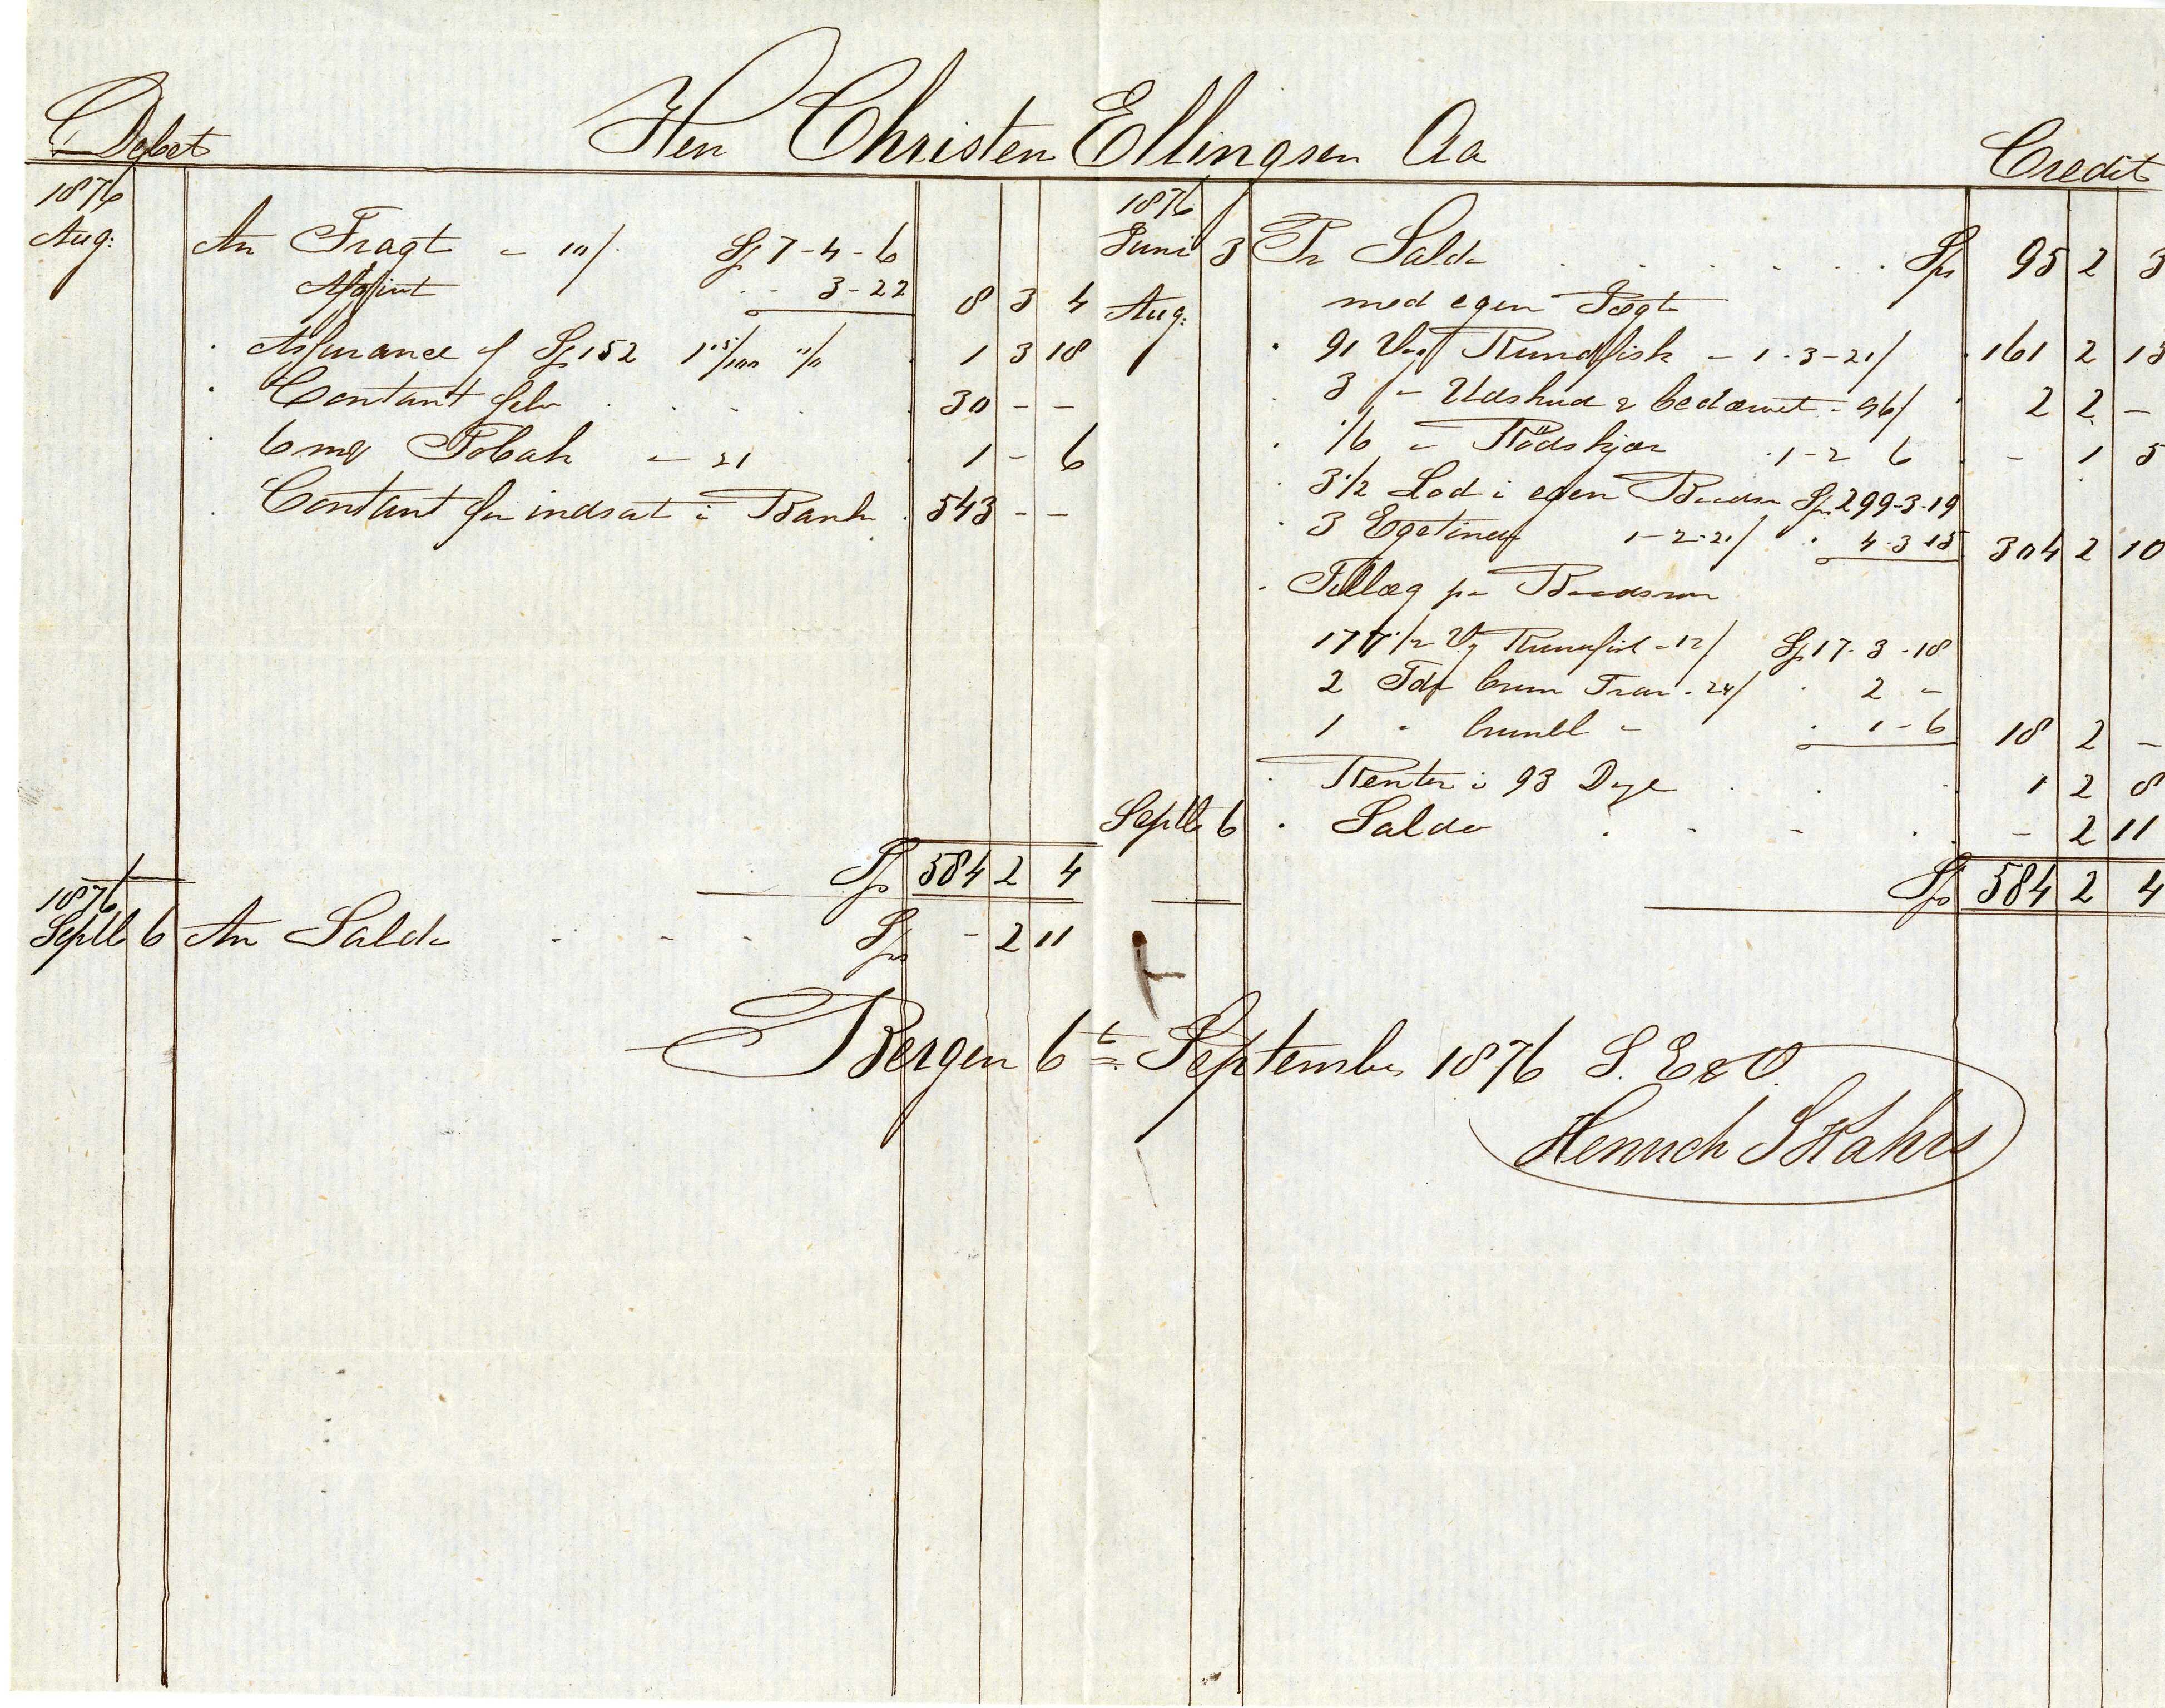 Debet Herr Christen Ellingsen Aa Credit
1876
Aug: An Fragt - 10/. Sp 7-4-6
3-22 8 3 4
" Assurance af Sp 152 1 15/100 % 1 3 18
" Contant selv 30 - -
" 6 mg Tobak - 21 1 - 6
" Contant for indsat i Bank 543 - -
Sp 584 2 4
1876
Septb 6 An Saldo Sp - 2 11
1876
Juni 3 Pr Saldo Sp 95 2 3
Aug: med egen Jægt
" 91 Vog Rundfisk - 1-3-21/ 161 2 13
" 3 " - Udskud & bedærvet - 96/ 2 2 -
" 1/6 - Rødskjær 1-2 6 - 1 5
" 3 1/2 Lod i egen Sp 299-3-19
" 3 1-2-21/ 4-3-15 304 2 10
" Tillæg pr
177 1/2 Vg Rundfisk - 12/ Sp 17-3-18
2 Tdr brun Tran - 24/ 2 -
1 " brunbl - 1-6 18 2 -
" Renter i 93 Dage 1 2 8
Septb 6 " Saldo - 2 11
Sp 584 2 4
Bergen 6te September 1876 S. E & O.
Henrich S Kahrs